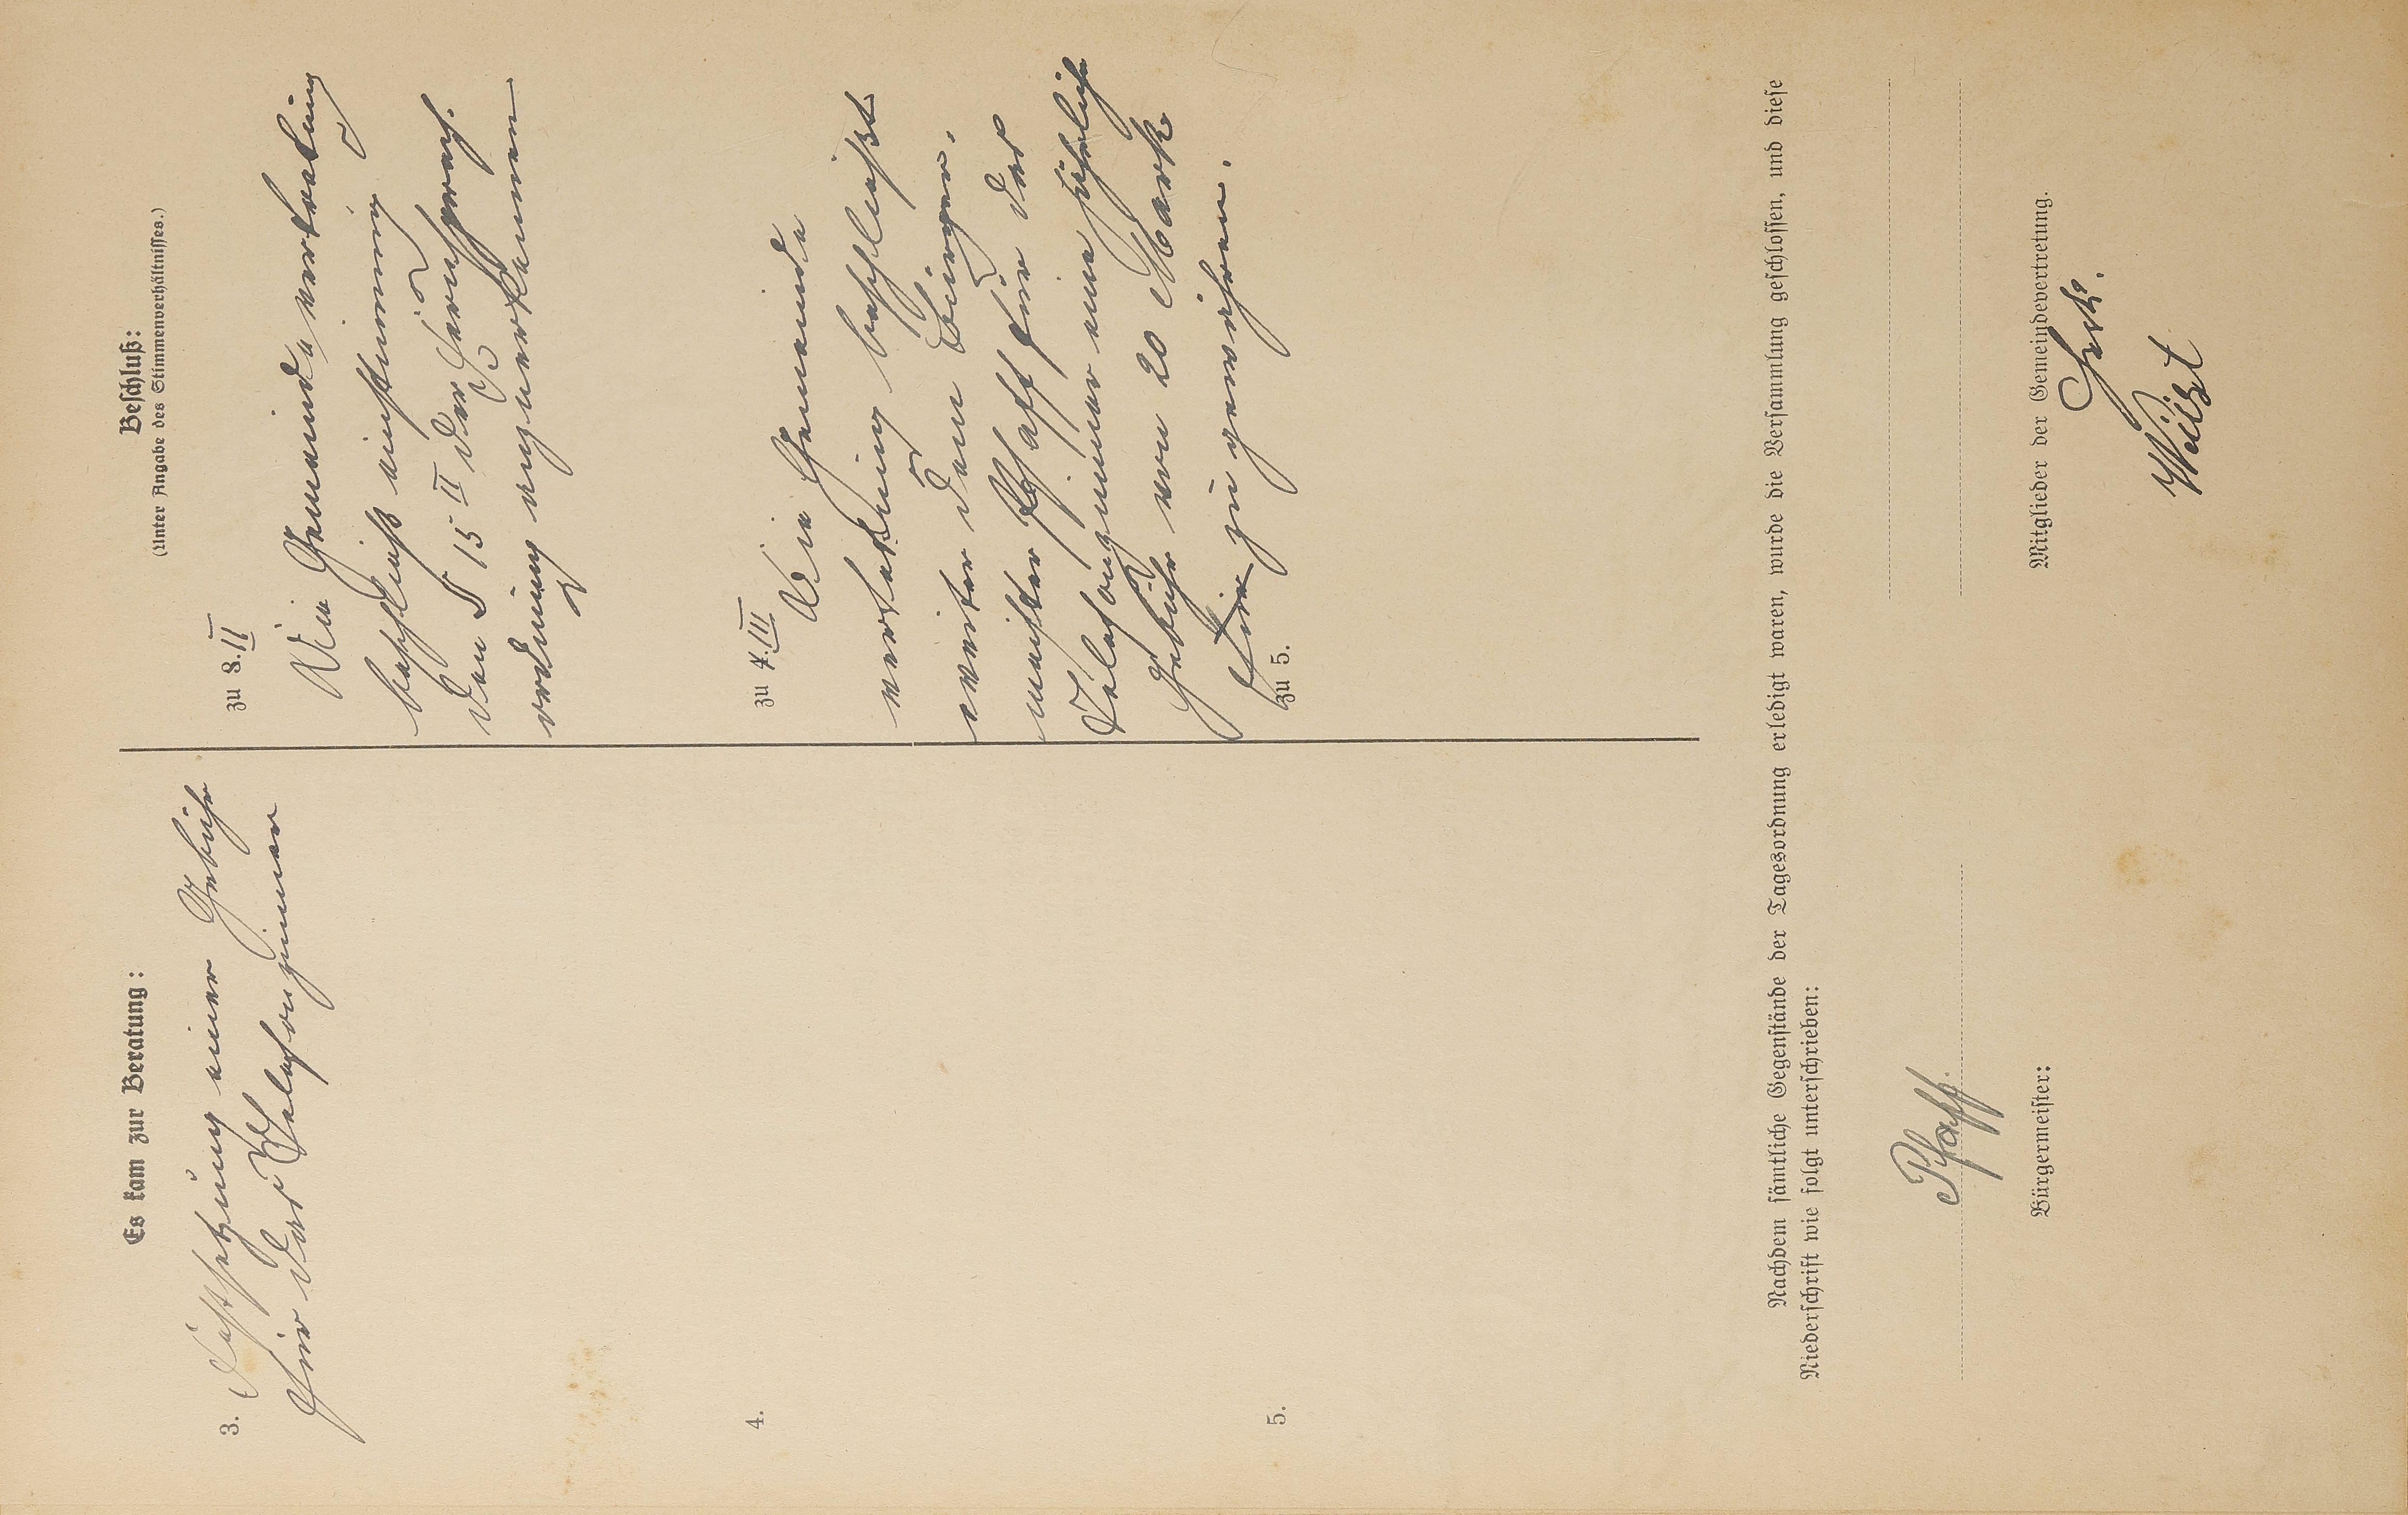 Es kam zur Beratung:
3. Festsetzung einer Gebühr
für das Telephonzimmer
4.
5.
Beschluß:
(Unter Angabe des Stimmenverhältnisses.)
zu 3. II
Die Gemeindevertretung
beschließt einstimmig
den § 15 II der
ordnung anzuerkennen
zu 4. III
Die Gemeinde
vertretung beschließt
weiter dem Bürger-
meister Pfaff für das
Telephonzimmer eine jährliche
Gebühr von 20 Mark
zu gewähren.
zu 5.
Nachdem sämtliche Gegenstände der Tagesordnung erledigt waren, wurde die Versammlung geschlossen, und diese
Niederschrift wie folgt unterschrieben:
Pfaff.
Bürgermeister:
Mitglieder der Gemeindevertretung.